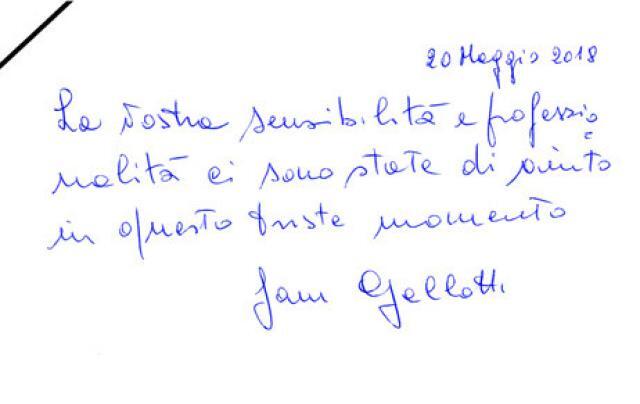 20 Maggio 2018
La Vostra sensibilità e professio
nalità ci sono state di aiuto
in questo triste momento
Fam